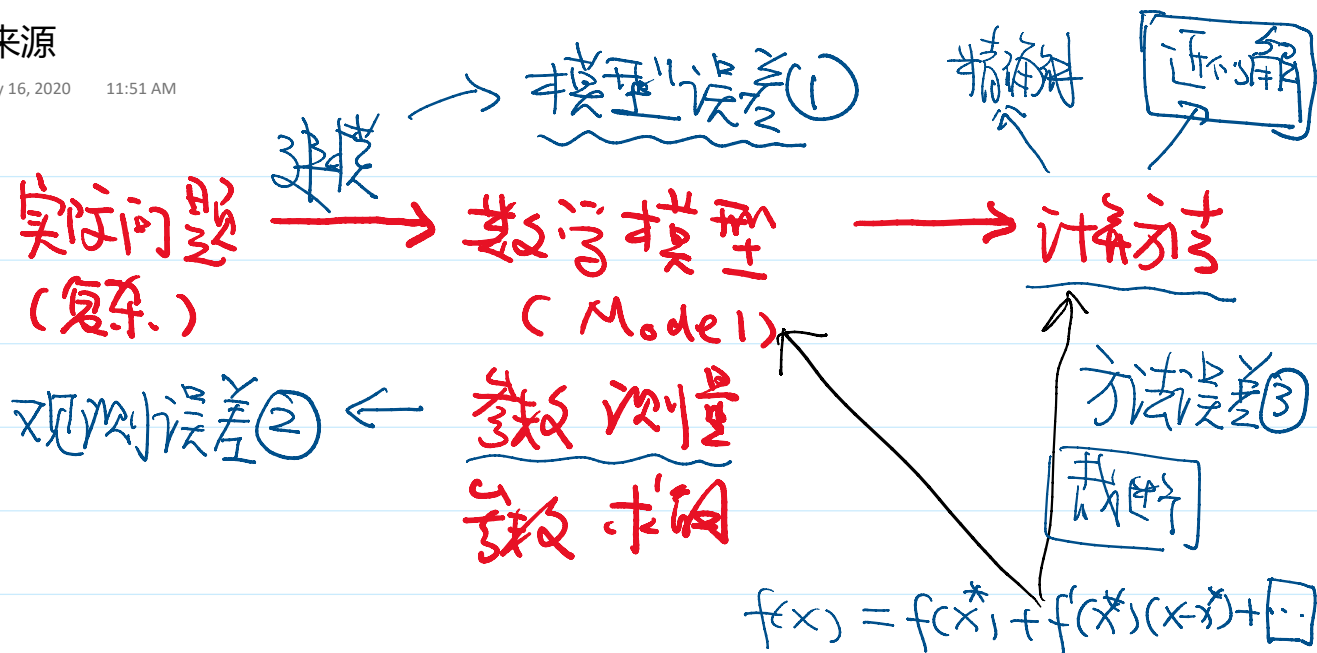 来源
16, 2020 11:51 AM
建模
模型误差①
精确解
近似解
实际问题
(复杂)
数学模型
(Model)
计算方法
观测误差②
参数测量
参数求解
方法误差③
截断
f(x) = f(x*) + f'(x*)(x-x*) + …